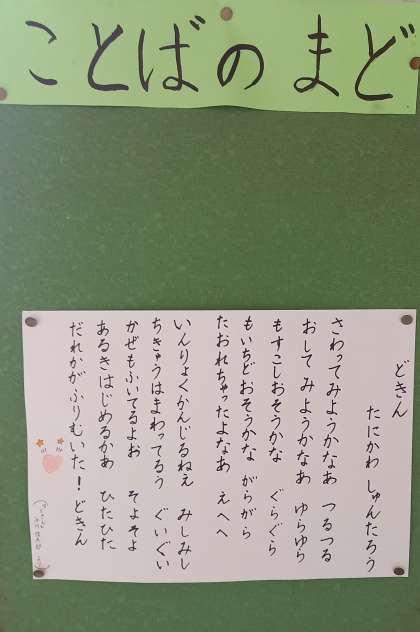 ことばの まど
どきん
たにかわ しゅんたろう
さわってみようかなあ つるつる
おしてみようかなあ ゆらゆら
もすこしおそうかな ぐらぐら
もいちどおそうかな がらがら
たおれちゃったよなあ えへへ
いんりょくかんじるねえ みしみし
ちきゅうはまわってるう ぐいぐい
かぜもふいてるよお そよそよ
あるきはじめるかあ ひたひた
だれかがふりむいた！ どきん